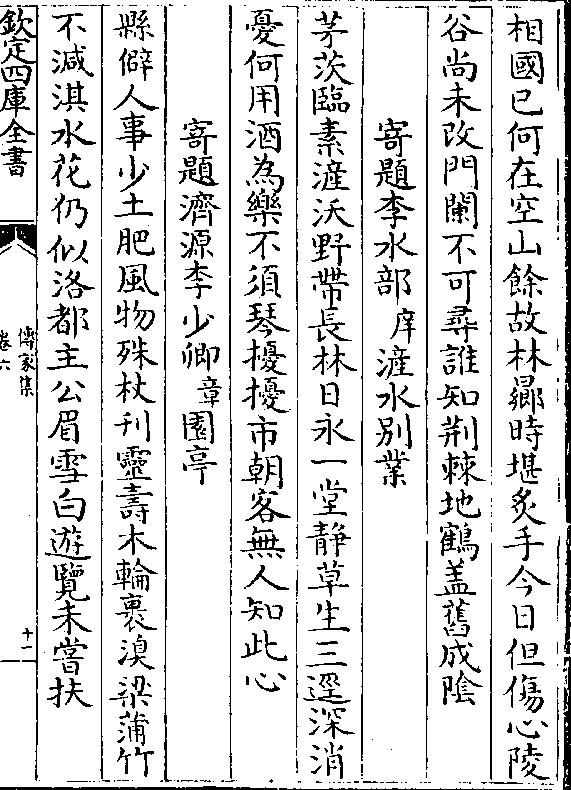 相國已何在空山餘故林曏時堪炙手今日但傷心陵
谷尚未改門闌不可尋誰知荆棘地鶴盖舊成陰
寄題李水部庠滻水别業
茅茨臨素滻沃野帶長林日永一堂静草生三逕深消
憂何用酒為樂不須琴擾擾市朝客無人知此心
寄題濟源李少卿章園亭
縣僻人事少土肥風物殊杖刋靈壽木輪裹溴梁蒲竹
不減淇水花仍似洛都主公眉雪白遊覽未嘗扶
欽定四庫全書
傳家集
卷六
十一